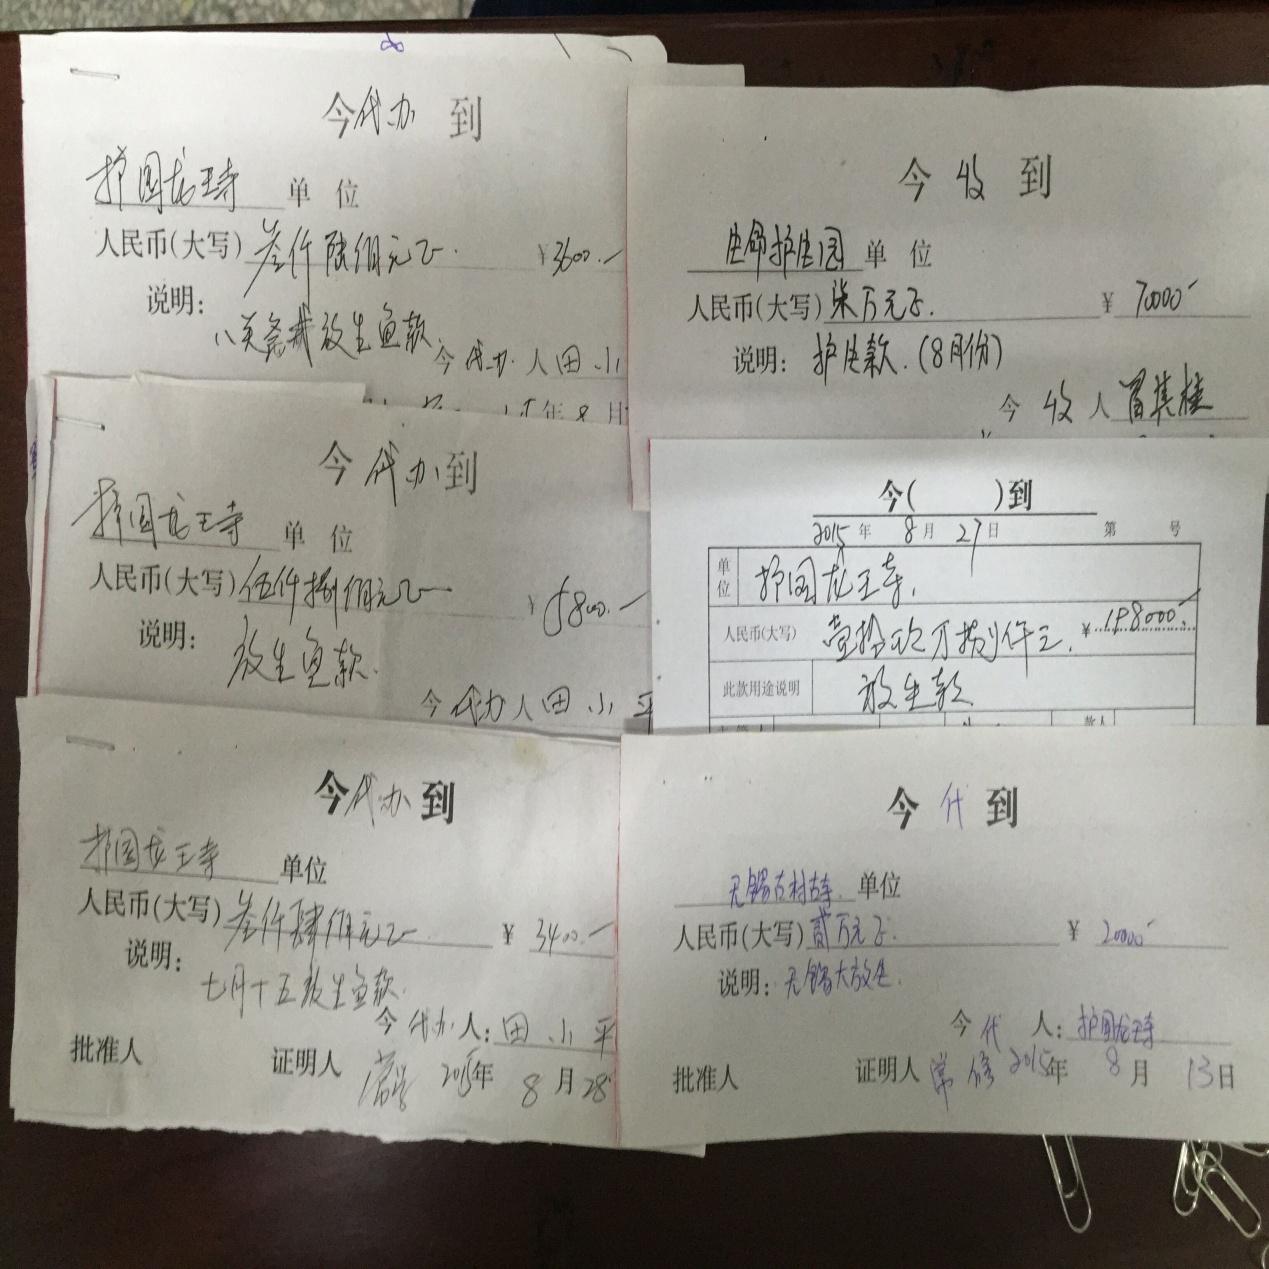 今代办到
护国龙王寺 单位
人民币(大写) 叁仟陆佰元正. ¥3600.-
说明:
八关斋戒放生鱼款
今代办人田小
年8月
今收到
生命护生园 单位
人民币(大写) 柒万元正. ¥70000-
说明: 护生款.(8月份)
今收人冒其桂
今代办到
护国龙王寺 单位
人民币(大写) 伍仟捌佰元正 ¥5800.-
说明:
放生鱼款.
今代办人田小平
今( )到
2015年8月27日 第 号
单位 护国龙王寺.
人民币(大写) 壹拾玖万捌仟元. ¥198000.-
此款用途说明 放生款
款人
今代办到
护国龙王寺 单位
人民币(大写) 叁仟肆佰元正 ¥3400.-
说明:
七月十五放生鱼款.
今代办人:田小平
批准人 证明人 2015年8月28
今代到
无锡古村古寺. 单位
人民币(大写) 贰万元正. ¥20000-
说明: 无锡大放生.
今代人: 护国龙王寺
批准人 证明人 常修 2015年8月13日